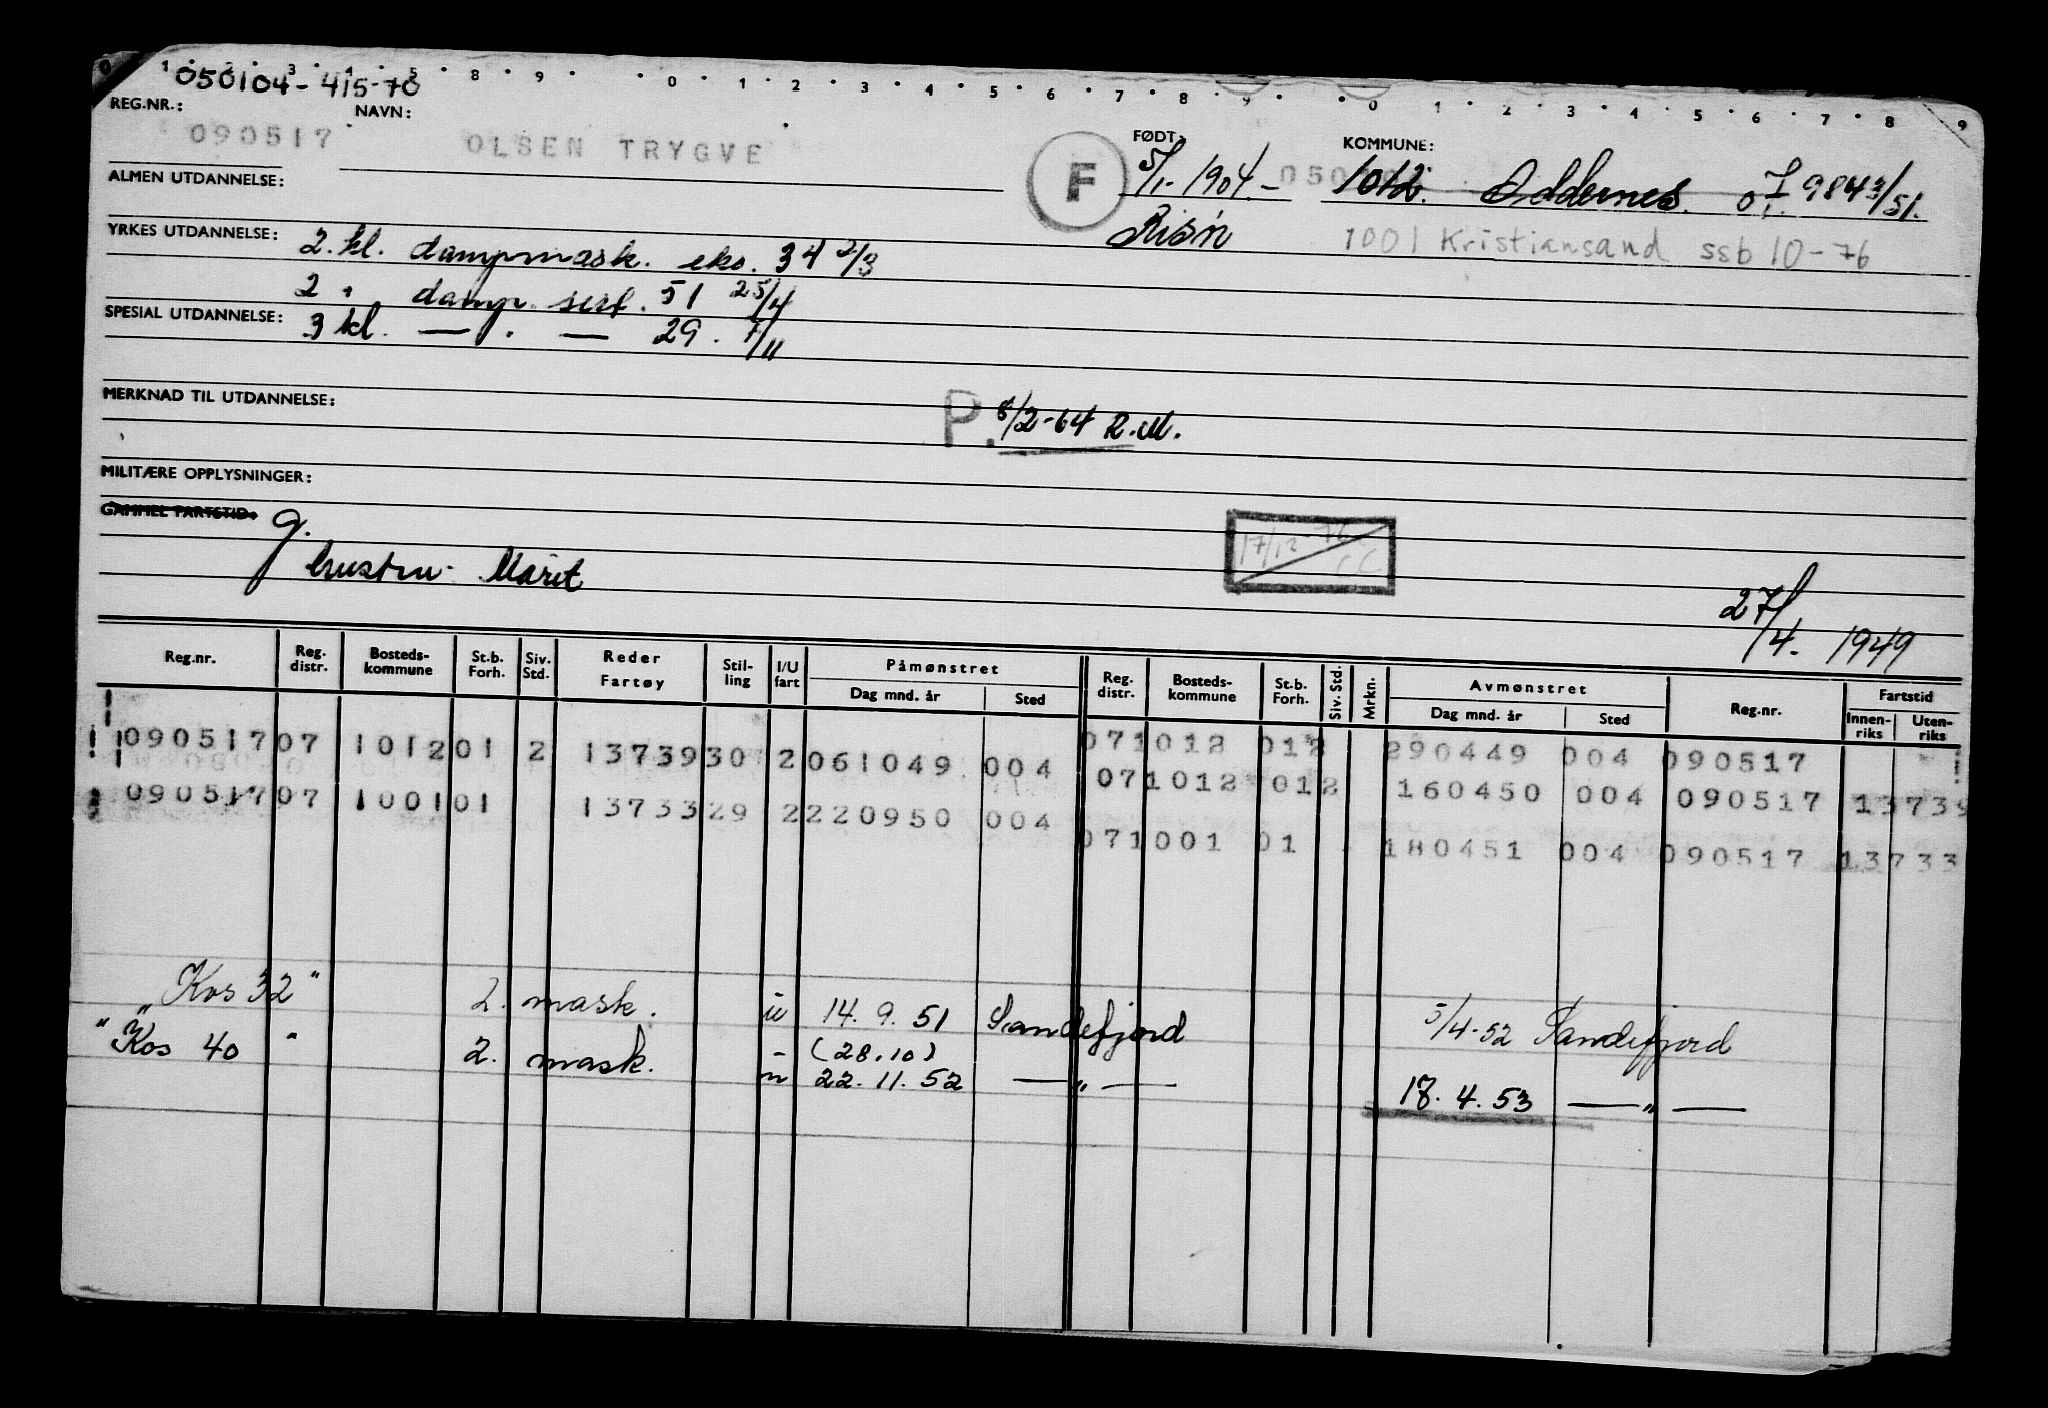 0 1 2 3 4 5 8 9 0 1 2 3 4 5 6 7 8 9 0 1 2 3 4 5 6 7 8 9
050104-415-70
REG.NR.: NAVN: FØDT: KOMMUNE:
090517 OLSEN TRYGVE F 5/1-1904.- 050 1012. Oddernes. 984 3/51.
ALMEN UTDANNELSE: Risör 1001 Kristiansand ssb 10-76
YRKES UTDANNELSE: 2. kl. dampmask. eks. 34 2/3
2 " damp. sert. 51 25/4
SPESIAL UTDANNELSE: 3 kl. — " — 29. 7/11
MERKNAD TIL UTDANNELSE: P. 8/2-64 R.M.
MILITÆRE OPPLYSNINGER:
GAMMEL FARTSTID: g. 17/12-76 CC
hustru - Marit 27/4. 1949
Reg.nr. Reg. distr. Bosteds-kommune St.b. Forh. Siv. Std. Reder Fartøy Stil-ling I/U fart Påmønstret Dag mnd. år Sted Reg. distr. Bosteds-kommune St.b. Forh. Siv. Std. Mrkn. Avmønstret Dag mnd. år Sted Reg.nr. Fartstid Innen-riks Uten-riks
071012 012 290449 004 090517
090517 07 1012 01 2 13739 30 2 061049 004 071012 012 160450 004 090517 13739
090517 07 1001 01 13733 29 2 220950 004 071001 01 180451 004 090517 13733
"Kos 32" 2. mask. u 14. 9. 51 Sandefjord 5/4-52 Sandefjord
"Kos 40" 2. mask. - (28.10)
u 22. 11. 52 — " — 18. 4. 53 — " —